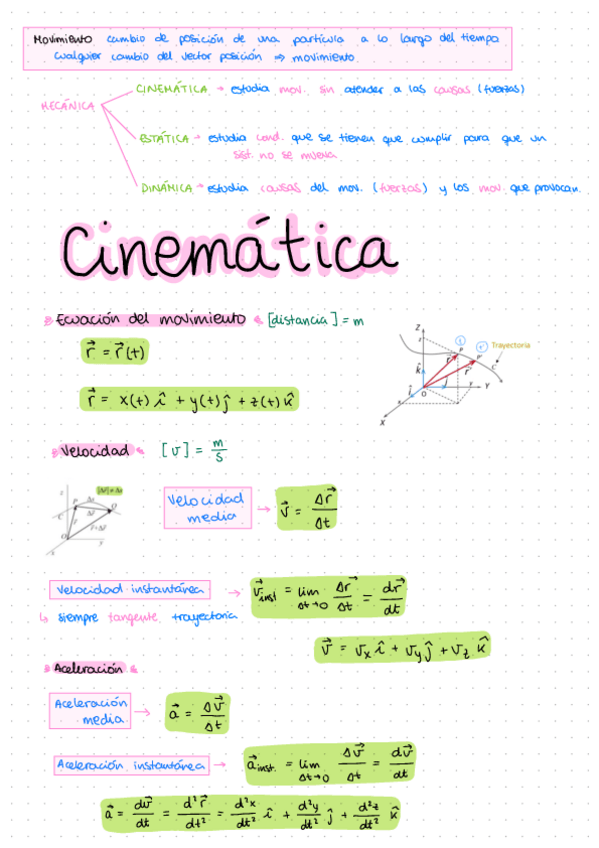 Movimiento cambio de posición de una partícula a lo largo del tiempo
cualquier cambio del vector posición ⇒ movimiento
CINEMÁTICA → estudia mov. sin atender a las causas (fuerzas)
MECÁNICA
ESTÁTICA → estudia cond. que se tienen que cumplir para que un
sist. no se mueva
DINÁMICA → estudia causas del mov. (fuerzas) y los mov. que provocan.
Cinemática
Ecuación del movimiento [distancia] = m
r⃗ = r⃗(t)
r⃗ = x(t) î + y(t) ĵ + z(t) k̂
Z
Trayectoria
Y
X
Velocidad [v] = m/s
Velocidad
media → v⃗ = Δr⃗/Δt
Velocidad instantánea → v⃗inst = lim Δt→0 Δr⃗/Δt = dr⃗/dt
↳ siempre tangente trayectoria
v⃗ = vx î + vy ĵ + vz k̂
Aceleración
Aceleración
media → a⃗ = Δv⃗/Δt
Aceleración instantánea → a⃗inst. = lim Δt→0 Δv⃗/Δt = dv⃗/dt
a⃗ = dv⃗/dt = d²r⃗/dt² = d²x/dt² î + d²y/dt² ĵ + d²z/dt² k̂